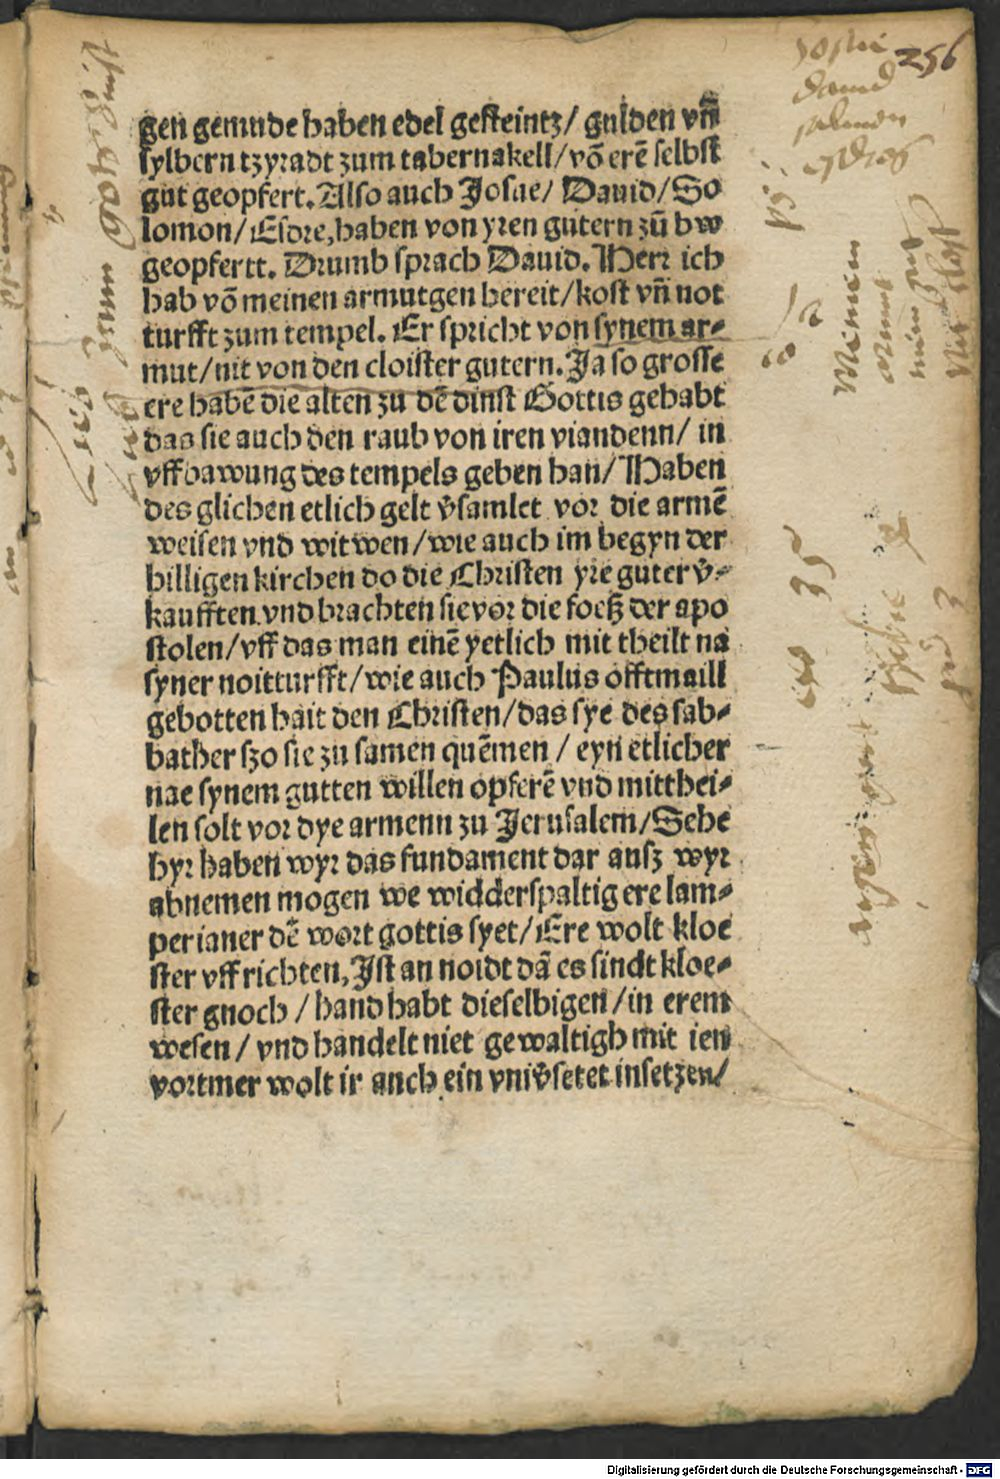 256
gen gemude haben edel gesteintz/ gulden vñ
sylbern tzyradt zum tabernakell/ võ erẽ selbst
gut geopfert. Also auch Josue/ Dauid/ So
lomon/ Esdre, haben von yren gutern zũ bw
geopfertt. Drumb sprach Dauid. Herr ich
hab võ meinen armutgen bereit/ kost vñ not
turfft zum tempel. Er spricht von synem ar-
mut/ nit von den cloister gutern. Ja so grosse
ere habẽ die alten zu dẽ dinst Gottis gehabt
das sie auch den raub von iren viandenn/ in
vffbawung des tempels geben han/ Haben
des glichen etlich gelt v̾samlet vor die armẽ
weisen vnd witwen/ wie auch im begyn der
hilligen kirchen do die Christen yre guter v̾-
kaufften vnd brachten sie vor die foeß der apo
stolen/ vff das man einẽ yetlich mit theilt na
syner noitturfft/ wie auch Paulus offtmaill
gebotten hait den Christen/ das sye des sab-
bather szo sie zu samen quẽmen / eyn etlicher
nae synem gutten willen opferẽ vnd mitthei-
len solt vor dye armenn zu Jerusalem/ Sehe
hyr haben wyr das fundament dar ausz wyr
abnemen mogen we widderspaltig ere lam-
perianer dẽ wort gottis syet/ Ere wolt kloe
ster vffrichten, Jst an noidt dã es sindt kloe-
ster gnoch / handhabt dieselbigen/ in erem
wesen / vnd handelt niet gewaltigh mit ien
vortmer wolt ir auch ein vniv̾setet insetzen/
Digitalisierung gefördert durch die Deutsche Forschungsgemeinschaft - DFG